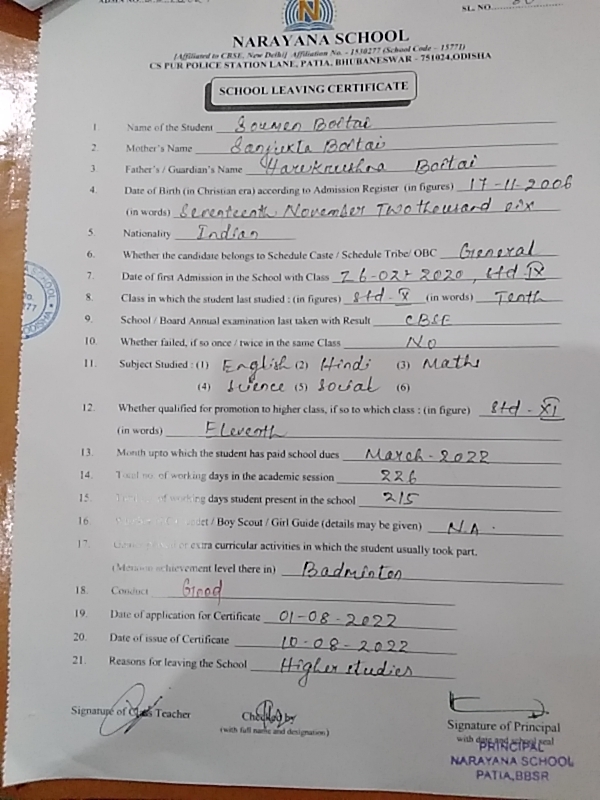 SL. NO.
NARAYANA SCHOOL
[Affiliated to CBSE, New Delhi] Affiliation No. - 1530277 (School Code - 15771)
CS PUR POLICE STATION LANE, PATIA, BHUBANESWAR - 751024,ODISHA
SCHOOL LEAVING CERTIFICATE
1. Name of the Student Soumen Boitai
2. Mother's Name Sanjukta Boitai
3. Father's / Guardian's Name Harekrushna Boitai
4. Date of Birth (in Christian era) according to Admission Register (in figures) 17-11-2006
(in words) Seventeenth November Two thousand six
5. Nationality Indian
6. Whether the candidate belongs to Schedule Caste / Schedule Tribe/ OBC General
7. Date of first Admission in the School with Class 26-02-2020, Std IX
8. Class in which the student last studied : (in figures) Std - X (in words) Tenth
9. School / Board Annual examination last taken with Result CBSE
10. Whether failed, if so once / twice in the same Class NO
11. Subject Studied : (1) English (2) Hindi (3) Maths
(4) Science (5) Social (6)
12. Whether qualified for promotion to higher class, if so to which class : (in figure) Std - XI
(in words) Eleventh
13. Month upto which the student has paid school dues March - 2022
14. Total no. of working days in the academic session 226
15. of working days student present in the school 215
16. / Boy Scout / Girl Guide (details may be given) N.A.
17. extra curricular activities in which the student usually took part.
(Mention achievement level there in) Badminton
18. Conduct Good
19. Date of application for Certificate 01-08-2022
20. Date of issue of Certificate 10-08-2022
21. Reasons for leaving the School Higher studies
Signature of Class Teacher Checked by Signature of Principal
(with full name and designation) with date and school seal
PRINCIPAL
NARAYANA SCHOOL
PATIA,BBSR